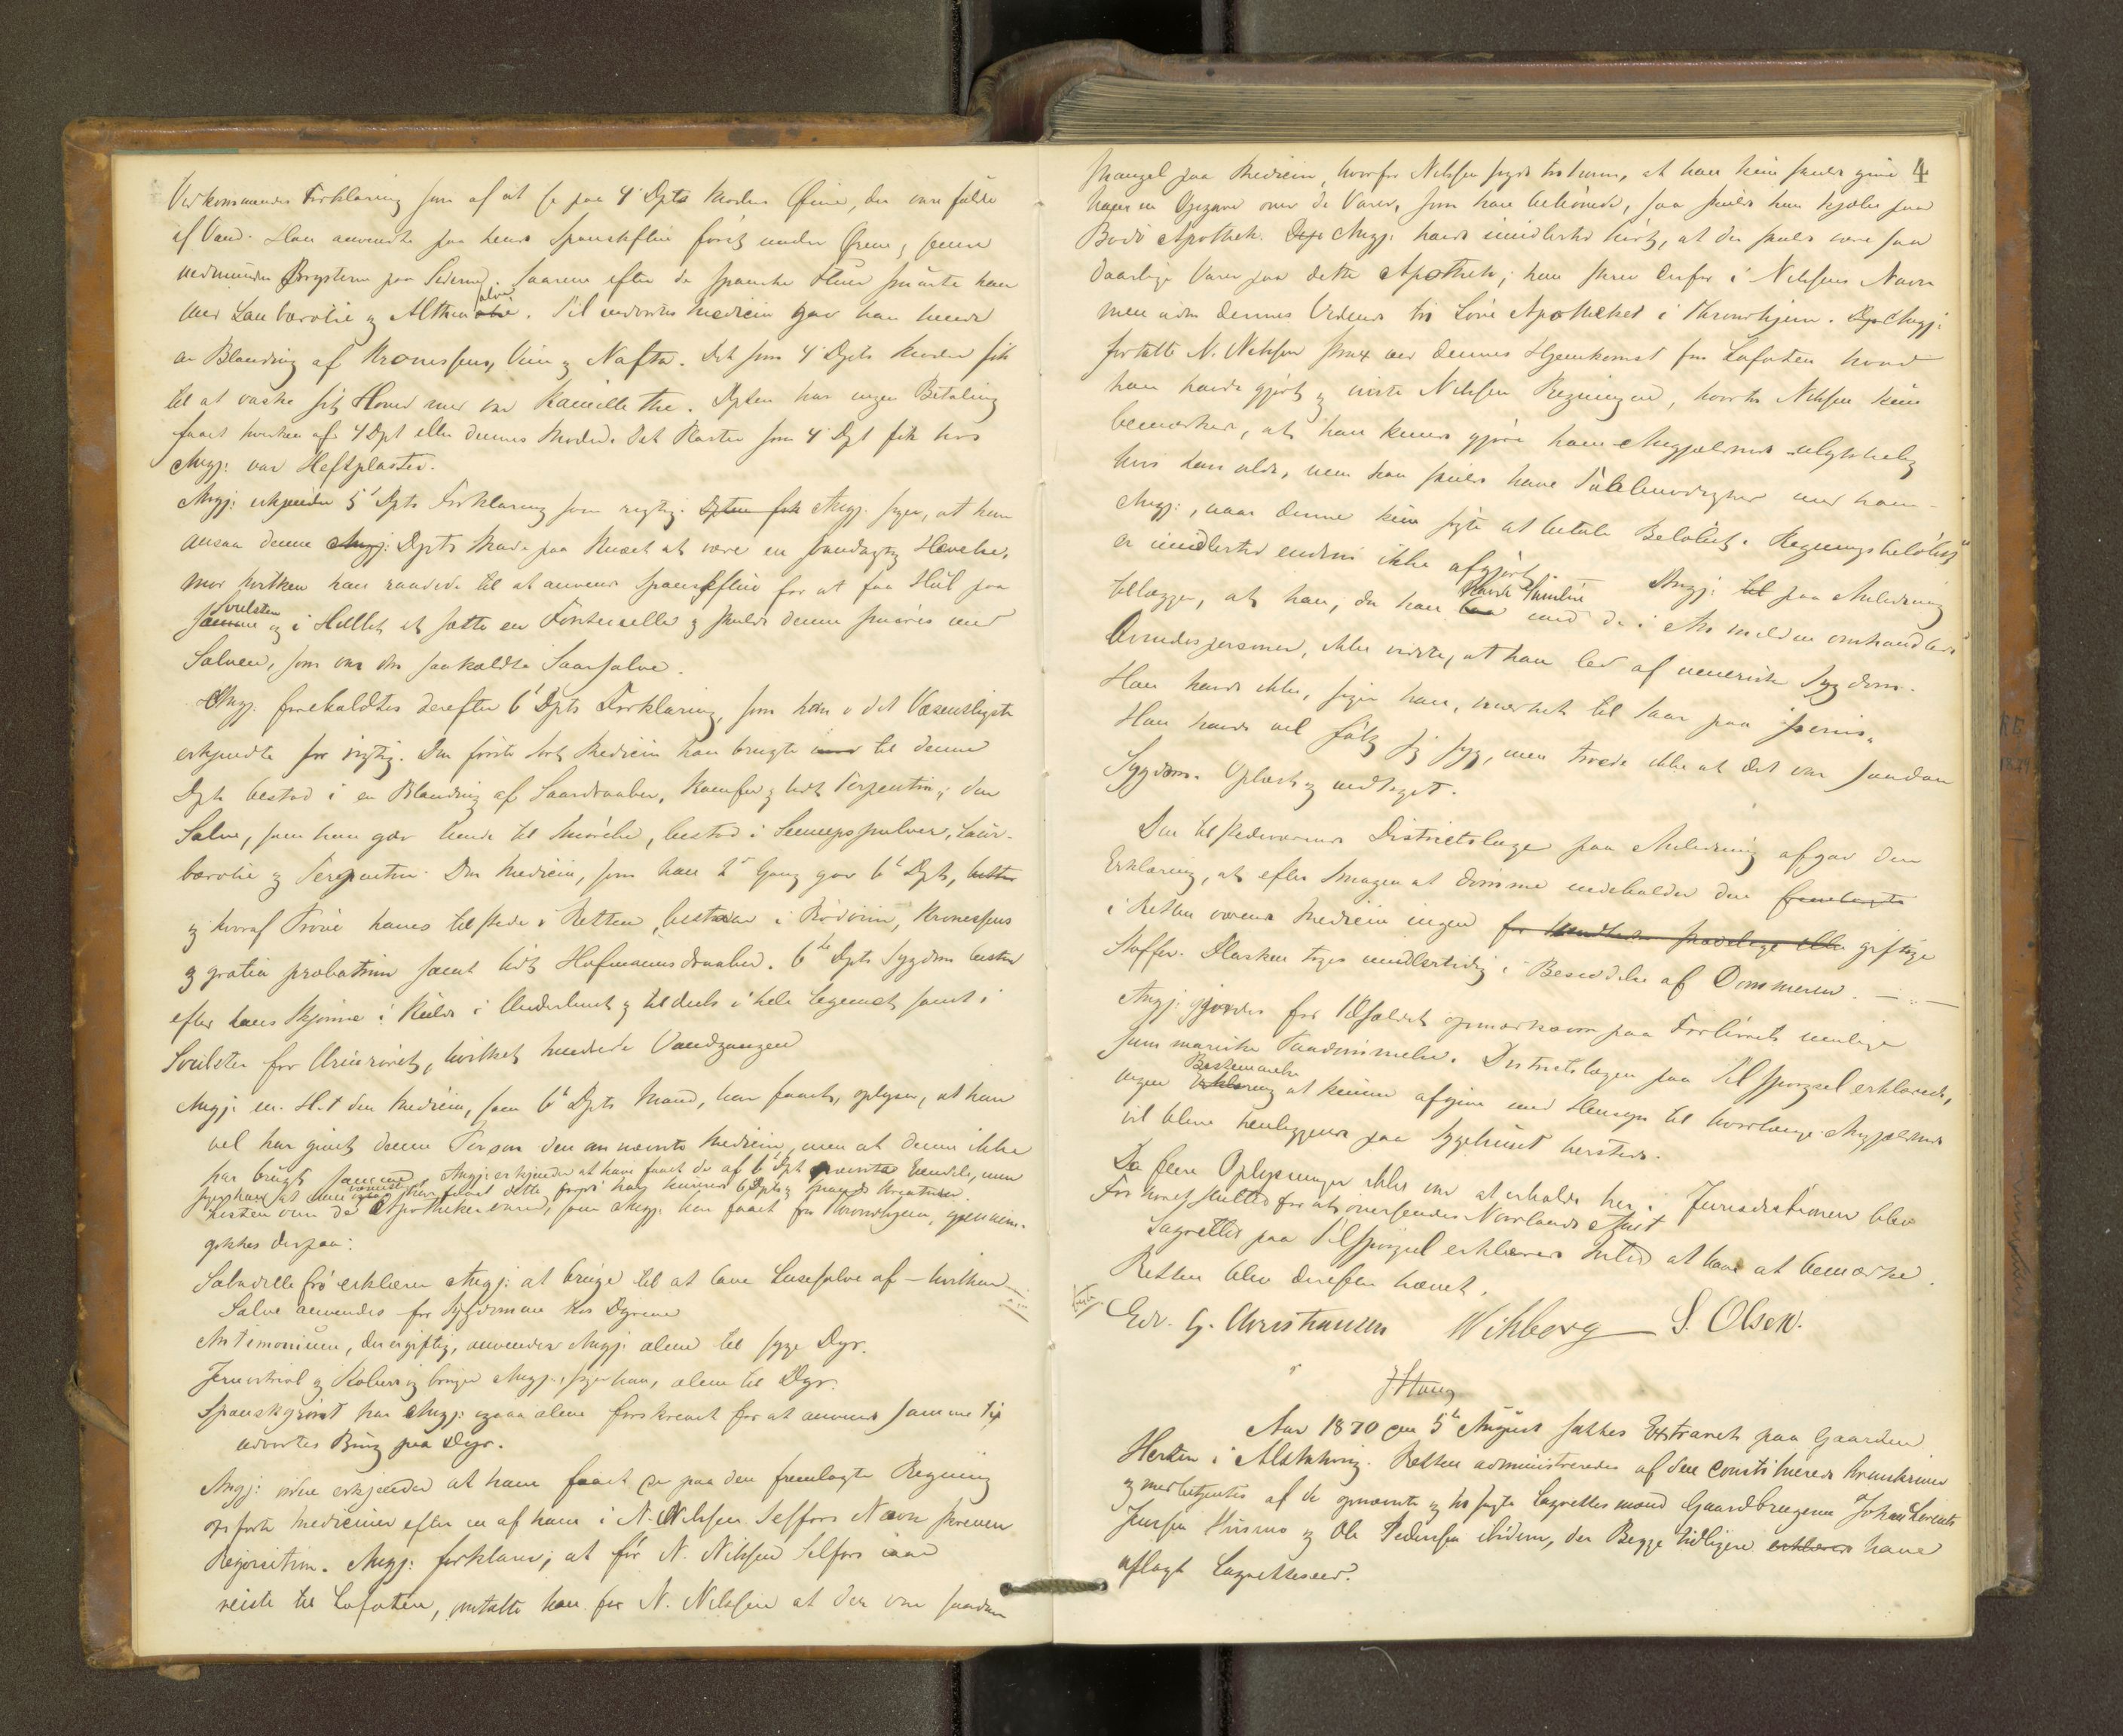 Vedkommendes Forklaring som af at se paa 4' Dpts Moders Øine, der vare fulde
af Vand. Han anvendte paa hende Spanskflue først under Ørene, senere
nedenunder Brysterne paa Siderne. Saarene efter de spanske Fluer smurte han
med Laubærolie og Althea salve. Til indvortes Medicin gav han hende
en Blanding af Kronessens, Viin og Nafta. Det som 4' Dpts Moder fik
til at vaske sit Hoved med var Kamille The. Dpten har ingen Betaling
faaet hverken af 4 Dpt eller dennes Moder. Det Plaster som 4' Dpt fik hos
Angj: var Heftplaster.
Angj: erkjender 5' Dpts Forklaring som rigtig. Dpten fik Angj. siger, at han
ansaa denne Angj: Dpts Skade paa Knæet at være en Hævelse,
mod hvilken han raadede til at anvende Spanskflue for at faa Hul paa
Svulsten samme og i Hullet at sætte en Fontenelle og skulde denne smøres med
Salven, som var den saakaldte Saarsalve.
Angj. foreholdtes derefter 6' Dpts Forklaring, som han i det Væsentligste
erkjendte for rigtig. Den første Sort Medicin han brugte til denne
Dpt bestod i en Blanding af Saardraaber, Kamfer og lidt Terpentin; den
Salve, som han gav hende til Smørelse, bestod i Sennepspulver, Laur-
bærolie og Terpentin. Den Medicin, som han 2' Gang gav 6' Dpt,
og hvoraf Prøve haves tilstede i Retten, bestaar i Rødviin, Kronessens
og gratia probatum samt lidt Hofmannsdraaber. 6te Dpts Sygdom bestod
efter hans Skjønne i Kulde i Underlivet og tildeels i hele Legemet samt i
Svulster for Urinrøret, hvilket hindrede Vandgangen
Angj: m. H. t den Medicin, som 6' Dpts Mand, har faaet, oplyser, at han
vel har givet denne Person den omnævnte Medicin, men at denne ikke
har brugt samme. Angj: erkjender at have faaet de af 6' Dpt nævnte Eiendele, men
Listen over de Apothekervarer, som Angj. har faaet fra Throndhjem, gjennem-
gikkes derpaa:
Sabadille frø erklærer Angj: at bruge til at lave Lusesalve af – hvilken
Salve anvendes for Sygdomme hos Dyrene
Antimonium, der er giftig, anvender Angj: alene til syge Dyr.
Jernvitriol og Kobber og bruger Angj:, siger han, alene til Dyr.
Spanskgrønt har Angj: ogsaa alene forskrevet for at anvende samme til
udvortes Brug paa Dyr.
Angj: erkjender at have faaet de paa den fremlagte Regning
opførte Mediciner efter en af ham i N. Nilssen Selfors Navn skreven
Reqvisition. Angj: forklarer, at før N. Nilssen Selfors iaar
reiste til Lofoten, omtalte han for N. Nilssen at der var saadan
4
Mangel paa Medicin, hvorfor Nilssen sagde til ham, at han kun skulde give
ham en Opgave over de Varer, som han behøvede, saa skulde han kjøbe paa
Bodø Apothek. Dpt Angj: havde imidlertid hørt, at der skulde være saa
daarlige Varer paa dette Apothek; han skrev derfor i Nilssens Navn
men uden dennes Vidende til Løve Apotheket i Throndhjem. Dpt Angj:
fortalte N. Nilssen strax ved dennes Hjemkomst fra Lofoten hvad
han havde gjort og viste Nilssen Regningen, hvortil Nilssen kun
bemærkede, at han kunde gjøre ham Angjældende ulykkelig
hvis han vilde, men han skulde have Taalmodighed med ham
Angj:, naar denne kun søgte at betale Beløbet. Regningsbeløbet
er imidlertid endnu ikke afgjort. Angj: til paa Anledning
tillægger, at han, da han havde Omgang med de i Anmeldelsen omhandlede
Qvindespersoner, ikke vidste, at han led af venerisk Sygdom.
Han havde ikke, siger han, mærket til Saar paa penis.
Han havde vel følt sig syg, men troede ikke at det var saadan
Sygdom. Oplæst og vedtaget.
Den tilstedeværende Districtslæge paa Anledning afgav den
Erklæring, at efter Smagen at dømme indeholder den fremlagte
i Retten værende Medicin ingen for Sundheden skadelige eller giftige
Stoffer. Flasken tages imidlertid i Besiddelse af Dommeren.
Angj: gjordes for Tilfældet opmærksom paa Forhørets mulige
summariske Paadømmelse. Districtslægen paa Tilspørgsel erklærede,
ingen Bestemmelse Erklæring at kunne afgive med Hensyn til hvorlænge Angjældende
vil blive henliggende paa Sygehuset hersteds.
Da flere Oplysninger ikke var at erholde her i Jurisdictionen blev
Forhøret sluttet for at oversendes Nordlands Amt
Lagrettet paa Tilspørgsel erklærede Intet at have at bemærke.
Retten blev derefter hævet.
Edv. G. Christiansen Wihlborg S. Olsen.
JHaug
Aar 1870 den 5te August sattes Extraret paa Gaarden
Herten i Alstahoug. Retten administreredes af den constituerede
og medbetjentes af de opnævnte og tilsagte Lagrettesmænd Gaardbrugerne Johan Lorents
Jenssen Husmo og Ole Pedersen ibidem, der Begge tidligere erklærede have
aflagt Lagretteseed.